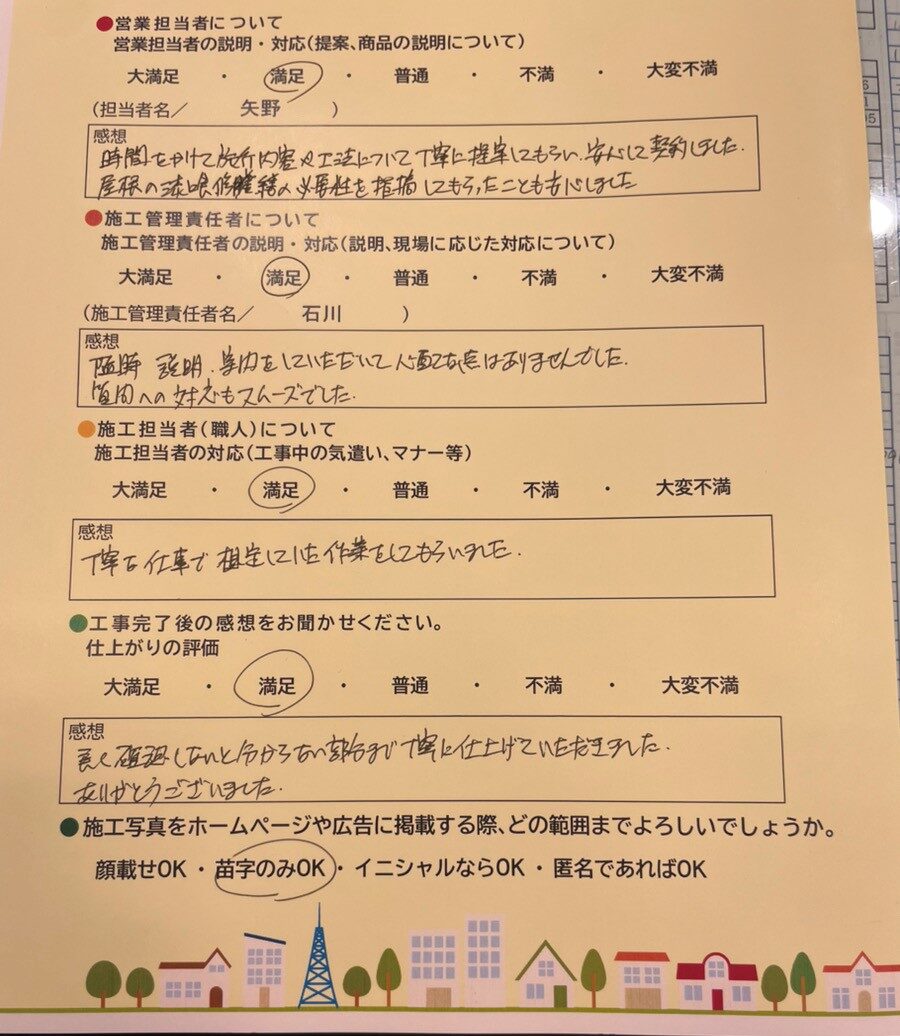 ●営業担当者について
営業担当者の説明・対応(提案、商品の説明について)
大満足 ・ 満足 ・ 普通 ・ 不満 ・ 大変不満
(担当者名/ 矢野 )
感想
時間をかけて施行内容や工法について丁寧に提案してもらい、安心して契約しました.
屋根の漆喰修繕の必要性を指摘してもらったことも安心しました
●施工管理責任者について
施工管理責任者の説明・対応(説明、現場に応じた対応について)
大満足 ・ 満足 ・ 普通 ・ 不満 ・ 大変不満
(施工管理責任者名/ 石川 )
感想
随時 説明、案内をしていただいて心配な点はありませんでした.
質問への対応もスムーズでした.
●施工担当者(職人)について
施工担当者の対応(工事中の気遣い、マナー等)
大満足 ・ 満足 ・ 普通 ・ 不満 ・ 大変不満
感想
丁寧な仕事で想定していた作業をしてもらいました.
●工事完了後の感想をお聞かせください。
仕上がりの評価
大満足 ・ 満足 ・ 普通 ・ 不満 ・ 大変不満
感想
良く確認しないと分からない部分まで丁寧に仕上げていただきました.
ありがとうございました.
●施工写真をホームページや広告に掲載する際、どの範囲までよろしいでしょうか。
顔載せOK ・ 苗字のみOK ・ イニシャルならOK ・ 匿名であればOK